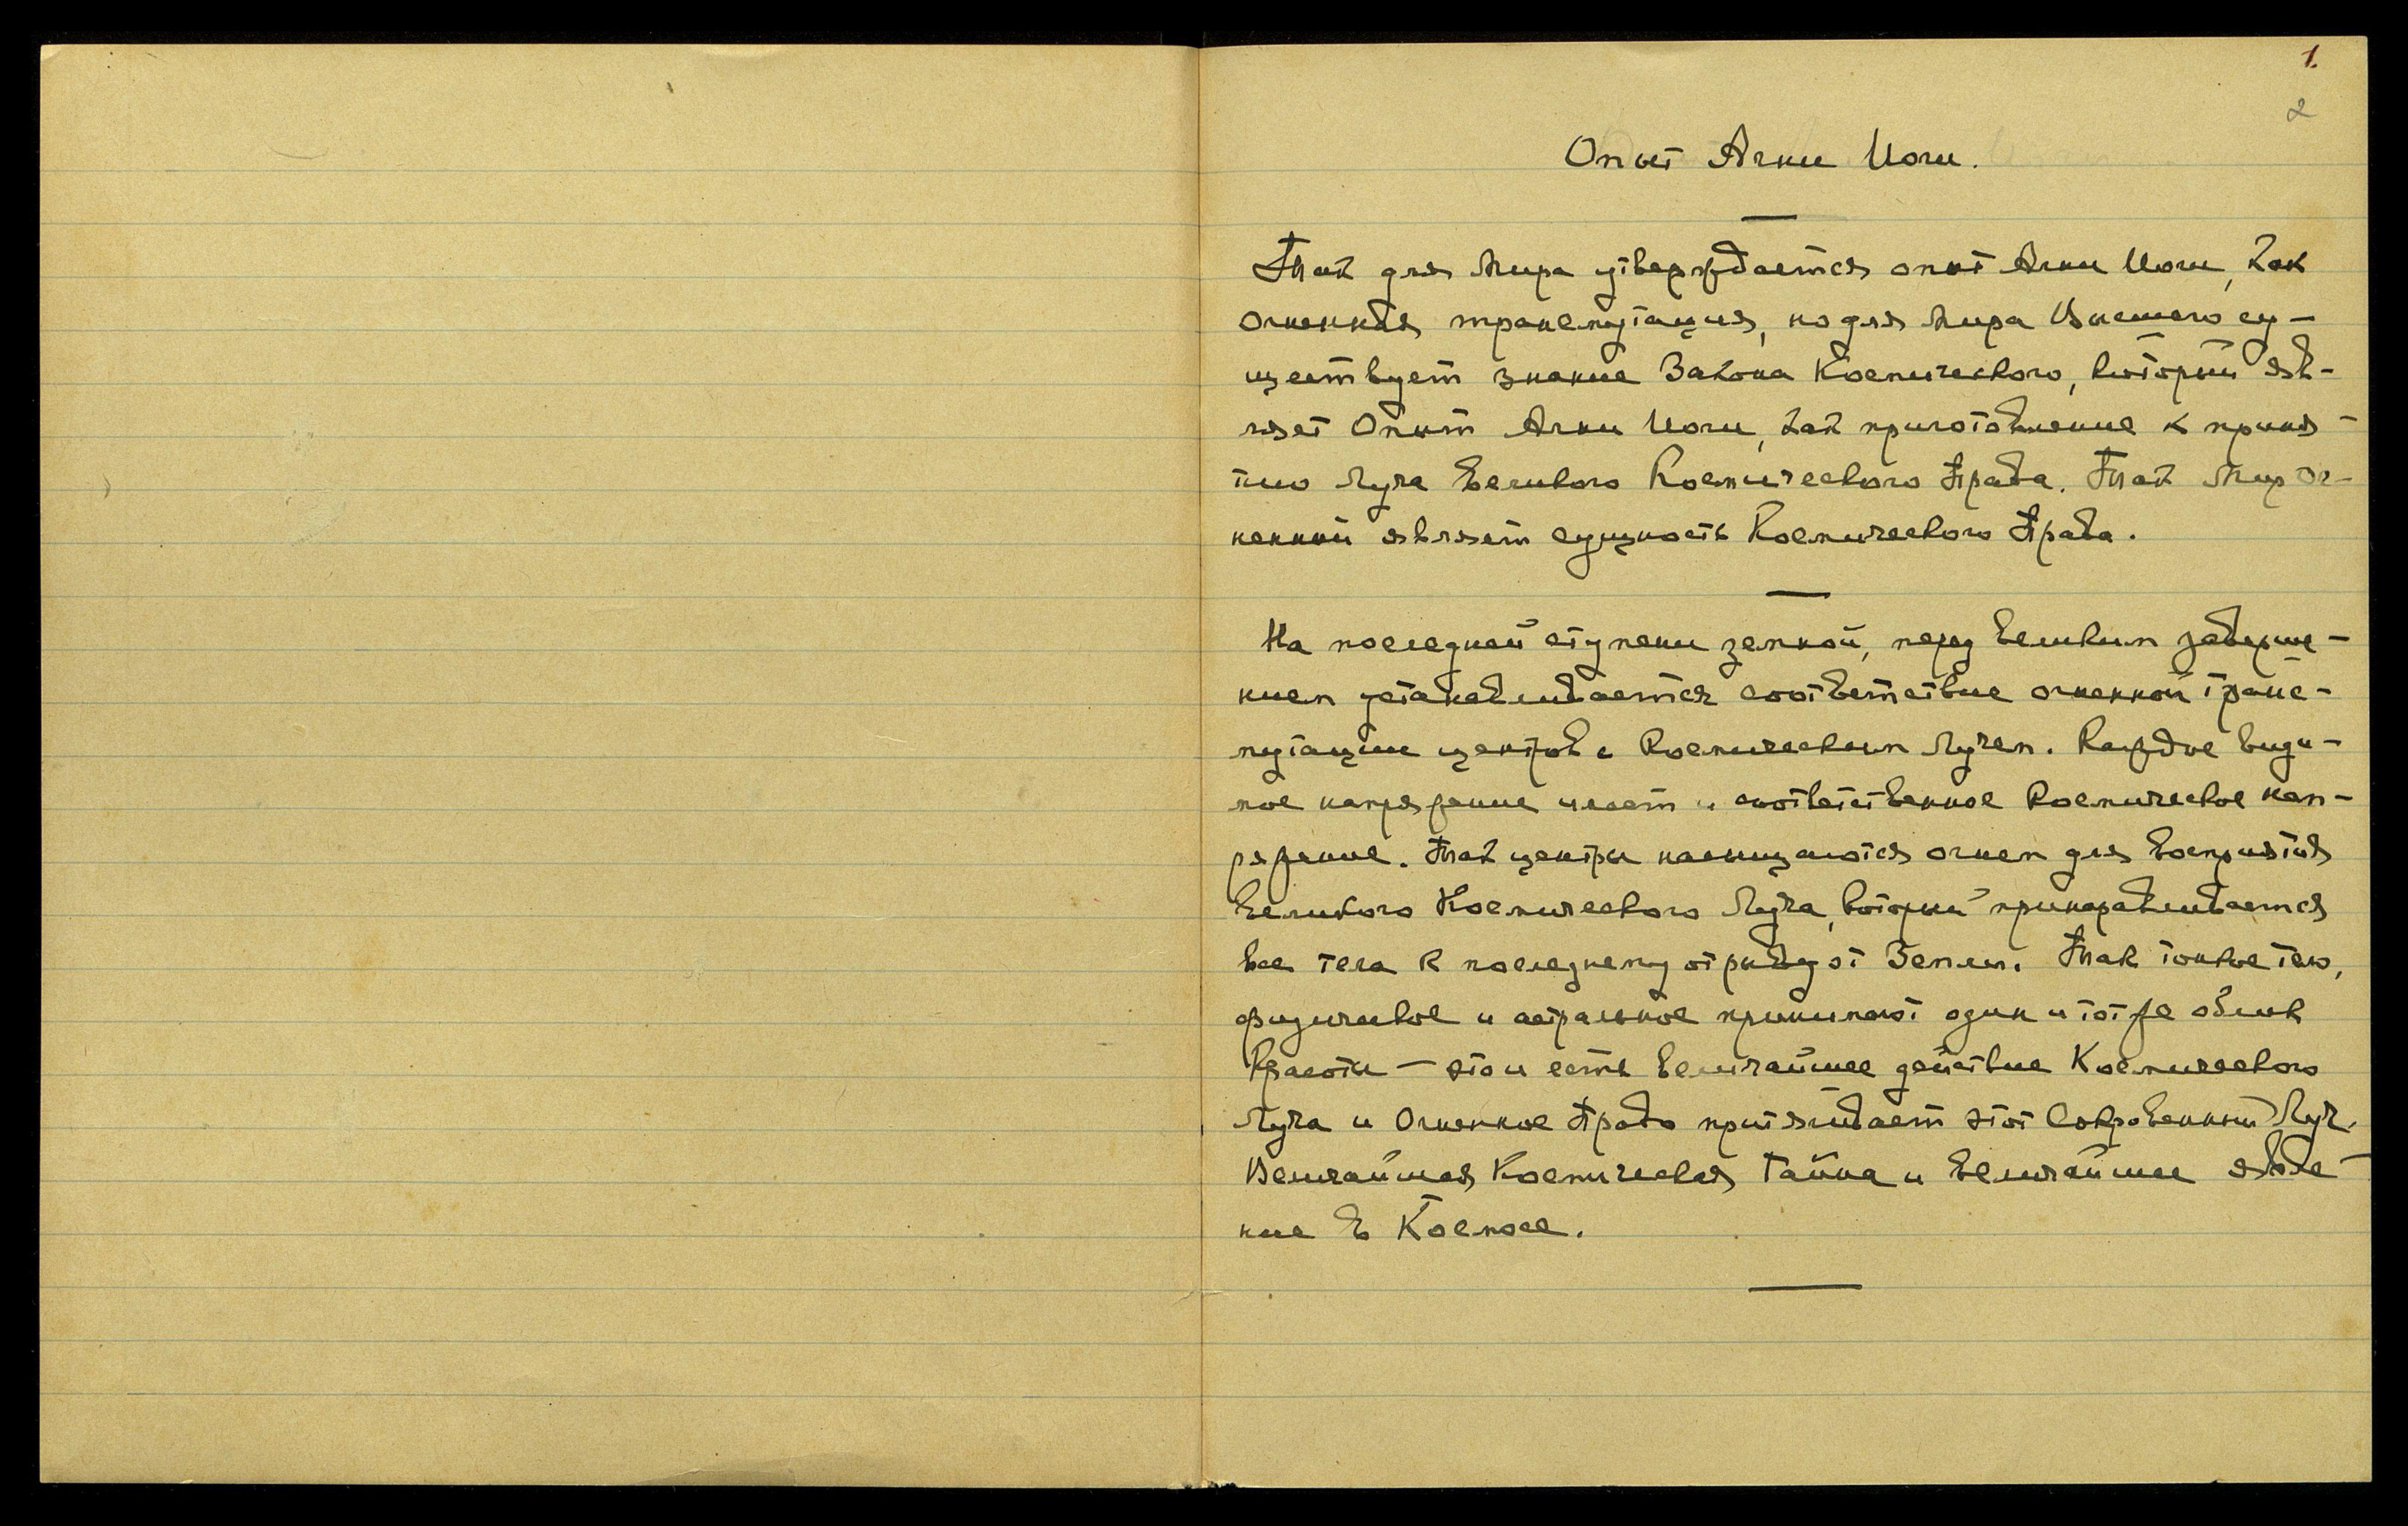 1.
2
Опыт Агни Йоги.
Так для Мира утверждается опыт Агни Йоги, как
огненная трансмутация, но для Мира Высшего су-
ществует знание Закона Космического, который яв-
ляет Опыт Агни Йоги, как приготовление к приня-
тию Луча Великого Космического Права. Так Мир Ог-
ненный являет сущность Космического Права.
На последней ступени земной, перед Великим заверше-
нием устанавливается соответствие огненной транс-
мутации центров с Космическим Лучем. Каждое види-
мое напряжение имеет и соответственное Космическое нап-
ряжение. Так центры насыщаются огнем для восприятия
Великого Космического Луча, который принаравливается
все тела к последнему отрыву от Земли. Так тонкое тело,
физическое и астральное принимают один и тот же облик
Красоты — это и есть величайшее действие Космического
Луча и Огненное Право притягивает этот Сокровенный Луч.
Величайшая Космическая Тайна и Величайшее явле-
ние в Космосе.